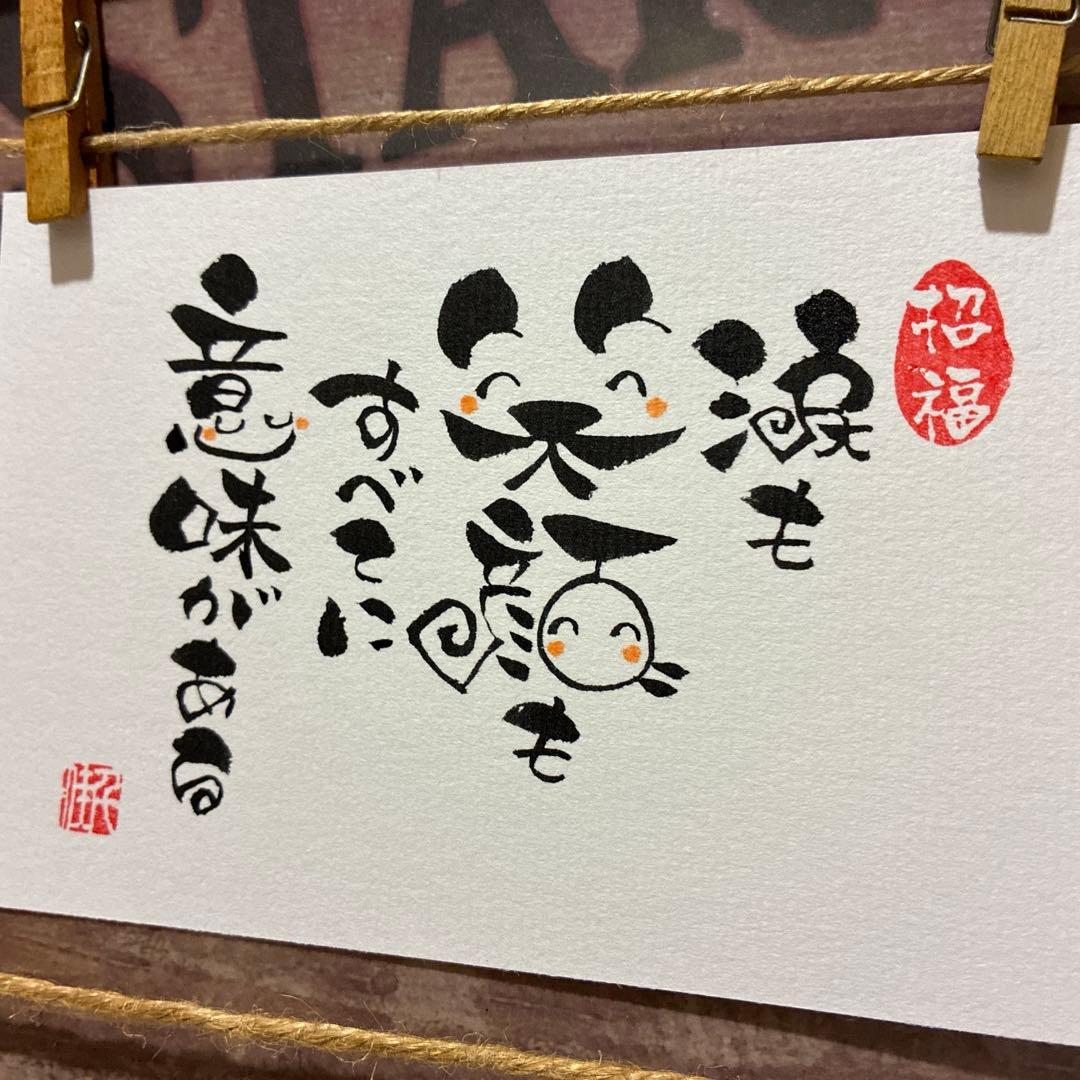 招福
涙も
笑顔も
すべてに
意味がある